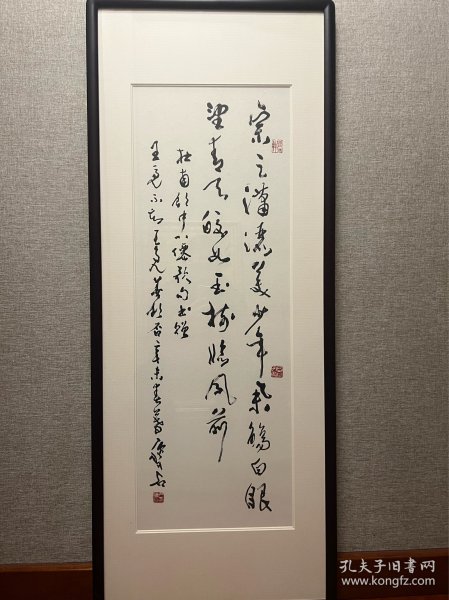 宗之潇洒美少年举觞白眼
望青天皎如玉树临风前
杜甫饮中八仙歌句书赠
王
辛未春暮
孔夫子旧书网
www.kongfz.com